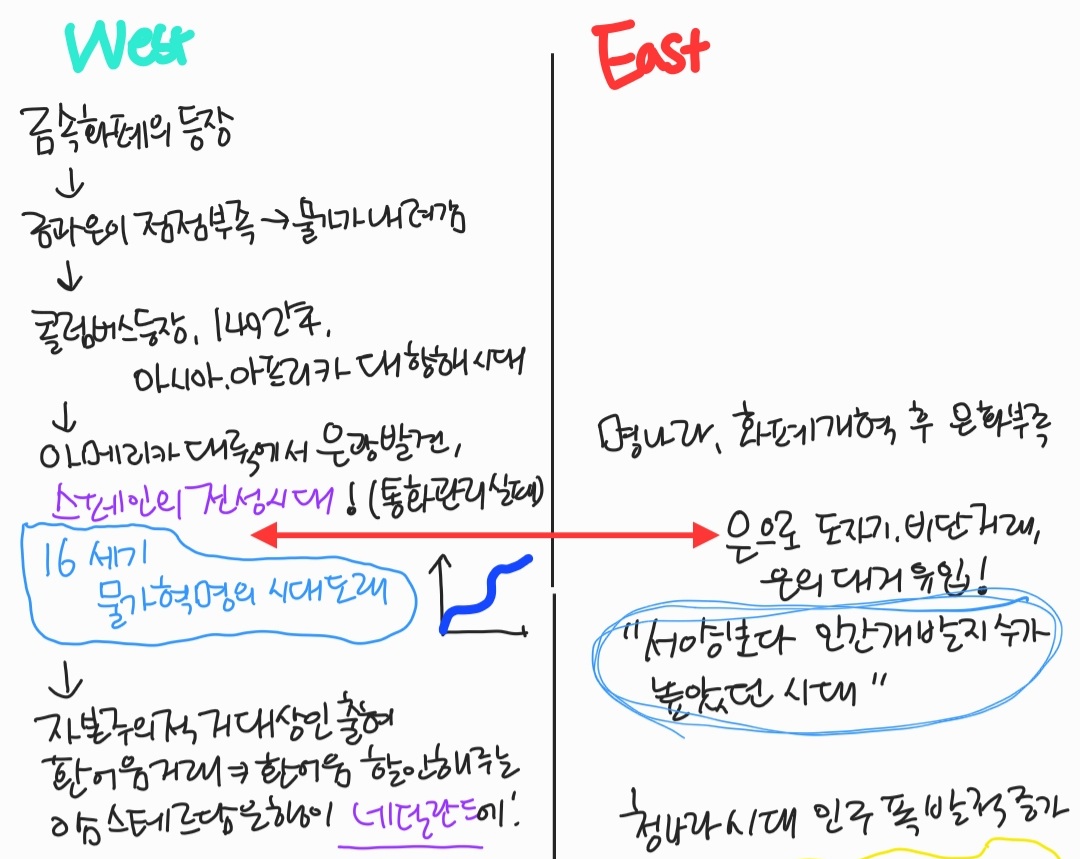 West
금속화폐의 등장
↓
금과은이 점점부족 → 물가가 내려감
↓
콜럼버스등장, 1492년후,
아시아.아프리카 대항해시대
↓
아메리카 대륙에서 은광발견,
스페인의 전성시대! (통화관리실패)
16세기
물가혁명의 시대도래
↓
자본주의적 거대상인출현
환어음거래 ⇒ 환어음 할인해주는
암스테르담은행이 네덜란드에!
East
명나라, 화폐개혁 후 은화부족
은으로 도자기.비단거래,
은의 대거유입!
"서양보다 인간개발지수가
높았던 시대"
청나라시대 인구폭발적증가